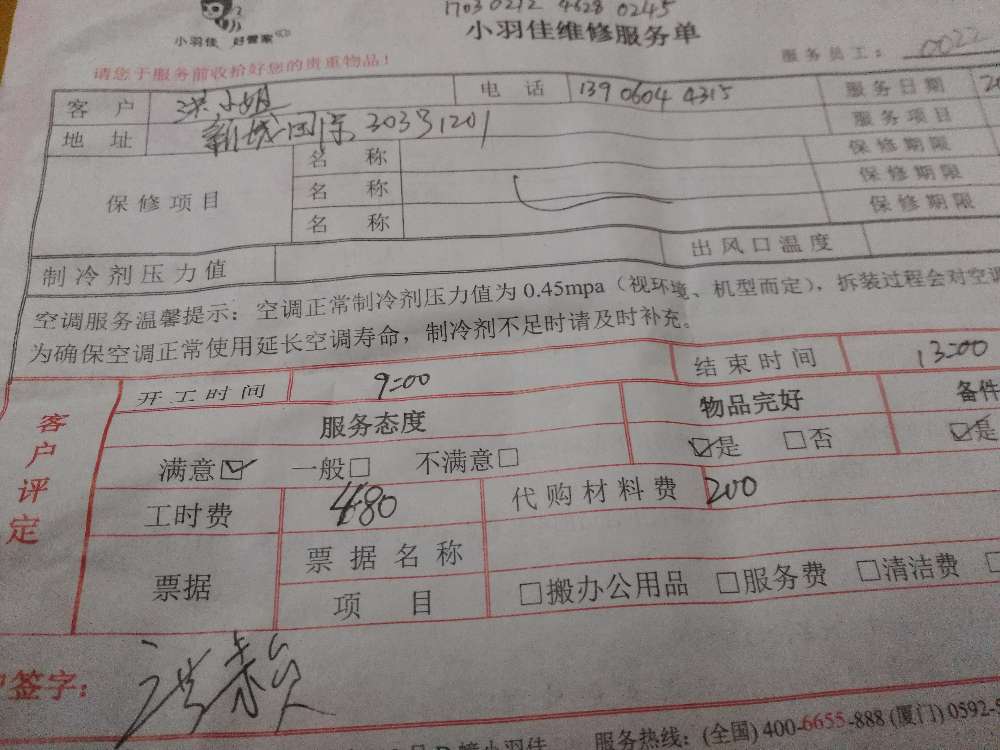 1703 0212 4628 0245
小羽佳 好管家
小羽佳维修服务单
请您于服务前收拾好您的贵重物品!
服务员工: 0022
客户 洪小姐 电话 139 0604 4315 服务日期 20
地址 新城国际 30331201 服务项目
保修项目 名称 保修期限
名称 保修期限
名称 保修期限
制冷剂压力值 出风口温度
空调服务温馨提示:空调正常制冷剂压力值为 0.45mpa(视环境、机型而定),拆装过程会对空调
为确保空调正常使用延长空调寿命,制冷剂不足时请及时补充。
客户评定
开工时间 9:00 结束时间 13:00
服务态度 物品完好 备件
满意☑ 一般□ 不满意□ ☑是 □否 ☑是
工时费 480 代购材料费 200
票据 票据名称
项目 □搬办公用品 □服务费 □清洁费 □
签字: 洪
小羽佳 服务热线:(全国) 400-6655-888 (厦门) 0592-5